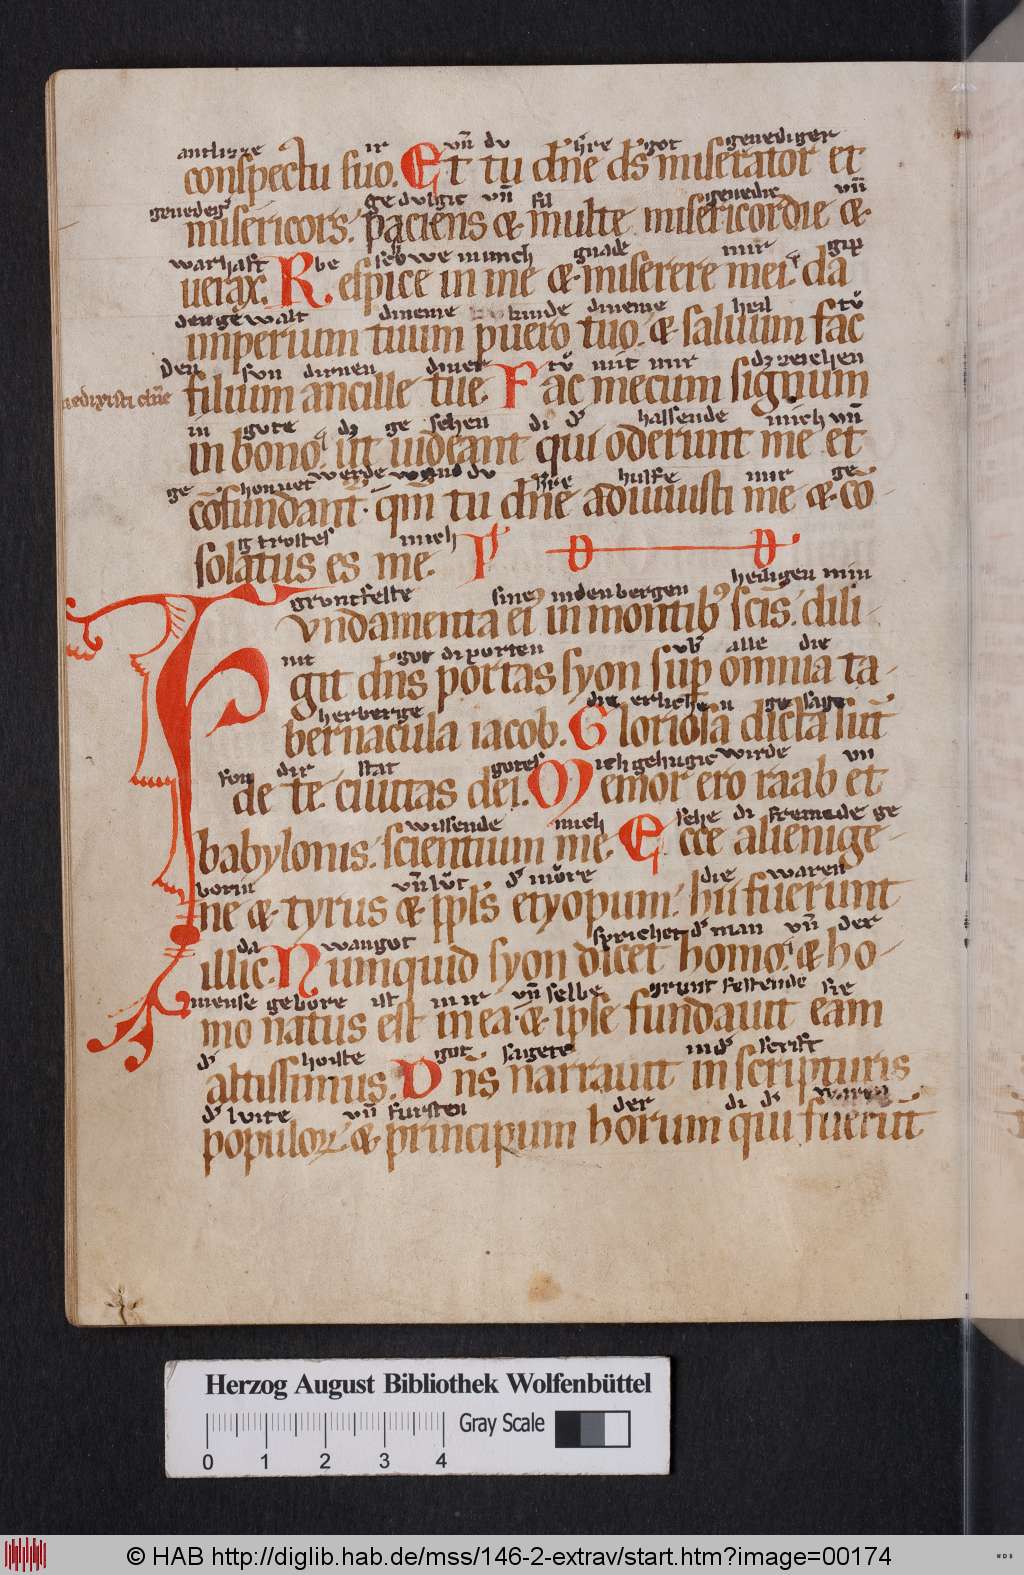 antlizze ir vn̄ du h're got genediger
conspectu suo. Et tu dn̄e ds̄ miserator et
genedeg' gedulgic vn̄ fil genedic vn̄
misericors. paciens & multe misericordie &
warhaft be mich gnade mir gip
uerax. Respice in me & miserere mei. da
den gewalt dineme kinde dineme heil tů
imperium tuum puero tuo. & saluum fac
den sun dirnen diner tů mit mir dz zeichen
filium ancille tue. Fac mecum signum
in gote dz ge sehen di d' hassende mich vn̄
in bono. ut uideant qui oderunt me et
ge honnet werde du h're hulfe mir ge
cōfundant. qm̄ tu dn̄e adiuuisti me & cō
g trostes mich
solatus es me. P D D
gruntfeste sine in den bergen heiligen min
Fundamenta ei in montib' scis. dili
nit got di porten vb' alle die
git dn̄s portas syon sup omnia ta-
herberge die erlichen ge sage
bernacula iacob. Gloriosa dicta sūt
fon dir stat gotes ich gehugic wirde vn
de te ciuitas dei. Memor ero raab et
wissende mich sehe di fremede ge
babylonis. scientium me. Ecce alienige-
born vn̄ lůt d' möre die waren
ne & tyrus & ppl's etyopum. hii fuerunt
da wan got sprichet d' man vn̄ der
illic. Numquid syon dicet homo. & ho-
mense gebore ist in ir vn̄ selbe grunt festende sie
mo natus est in ea. & ipse fundauit eam
d' hoiste got sagete in d' scrift
altissimus. Dns narrauit in scripturis
d' luite vn̄ fursten der di d' waren
populoꝝ & principum horum qui fuerūt
Herzog August Bibliothek Wolfenbüttel
Gray Scale
0 1 2 3 4
© HAB http://diglib.hab.de/mss/146-2-extrav/start.htm?image=00174